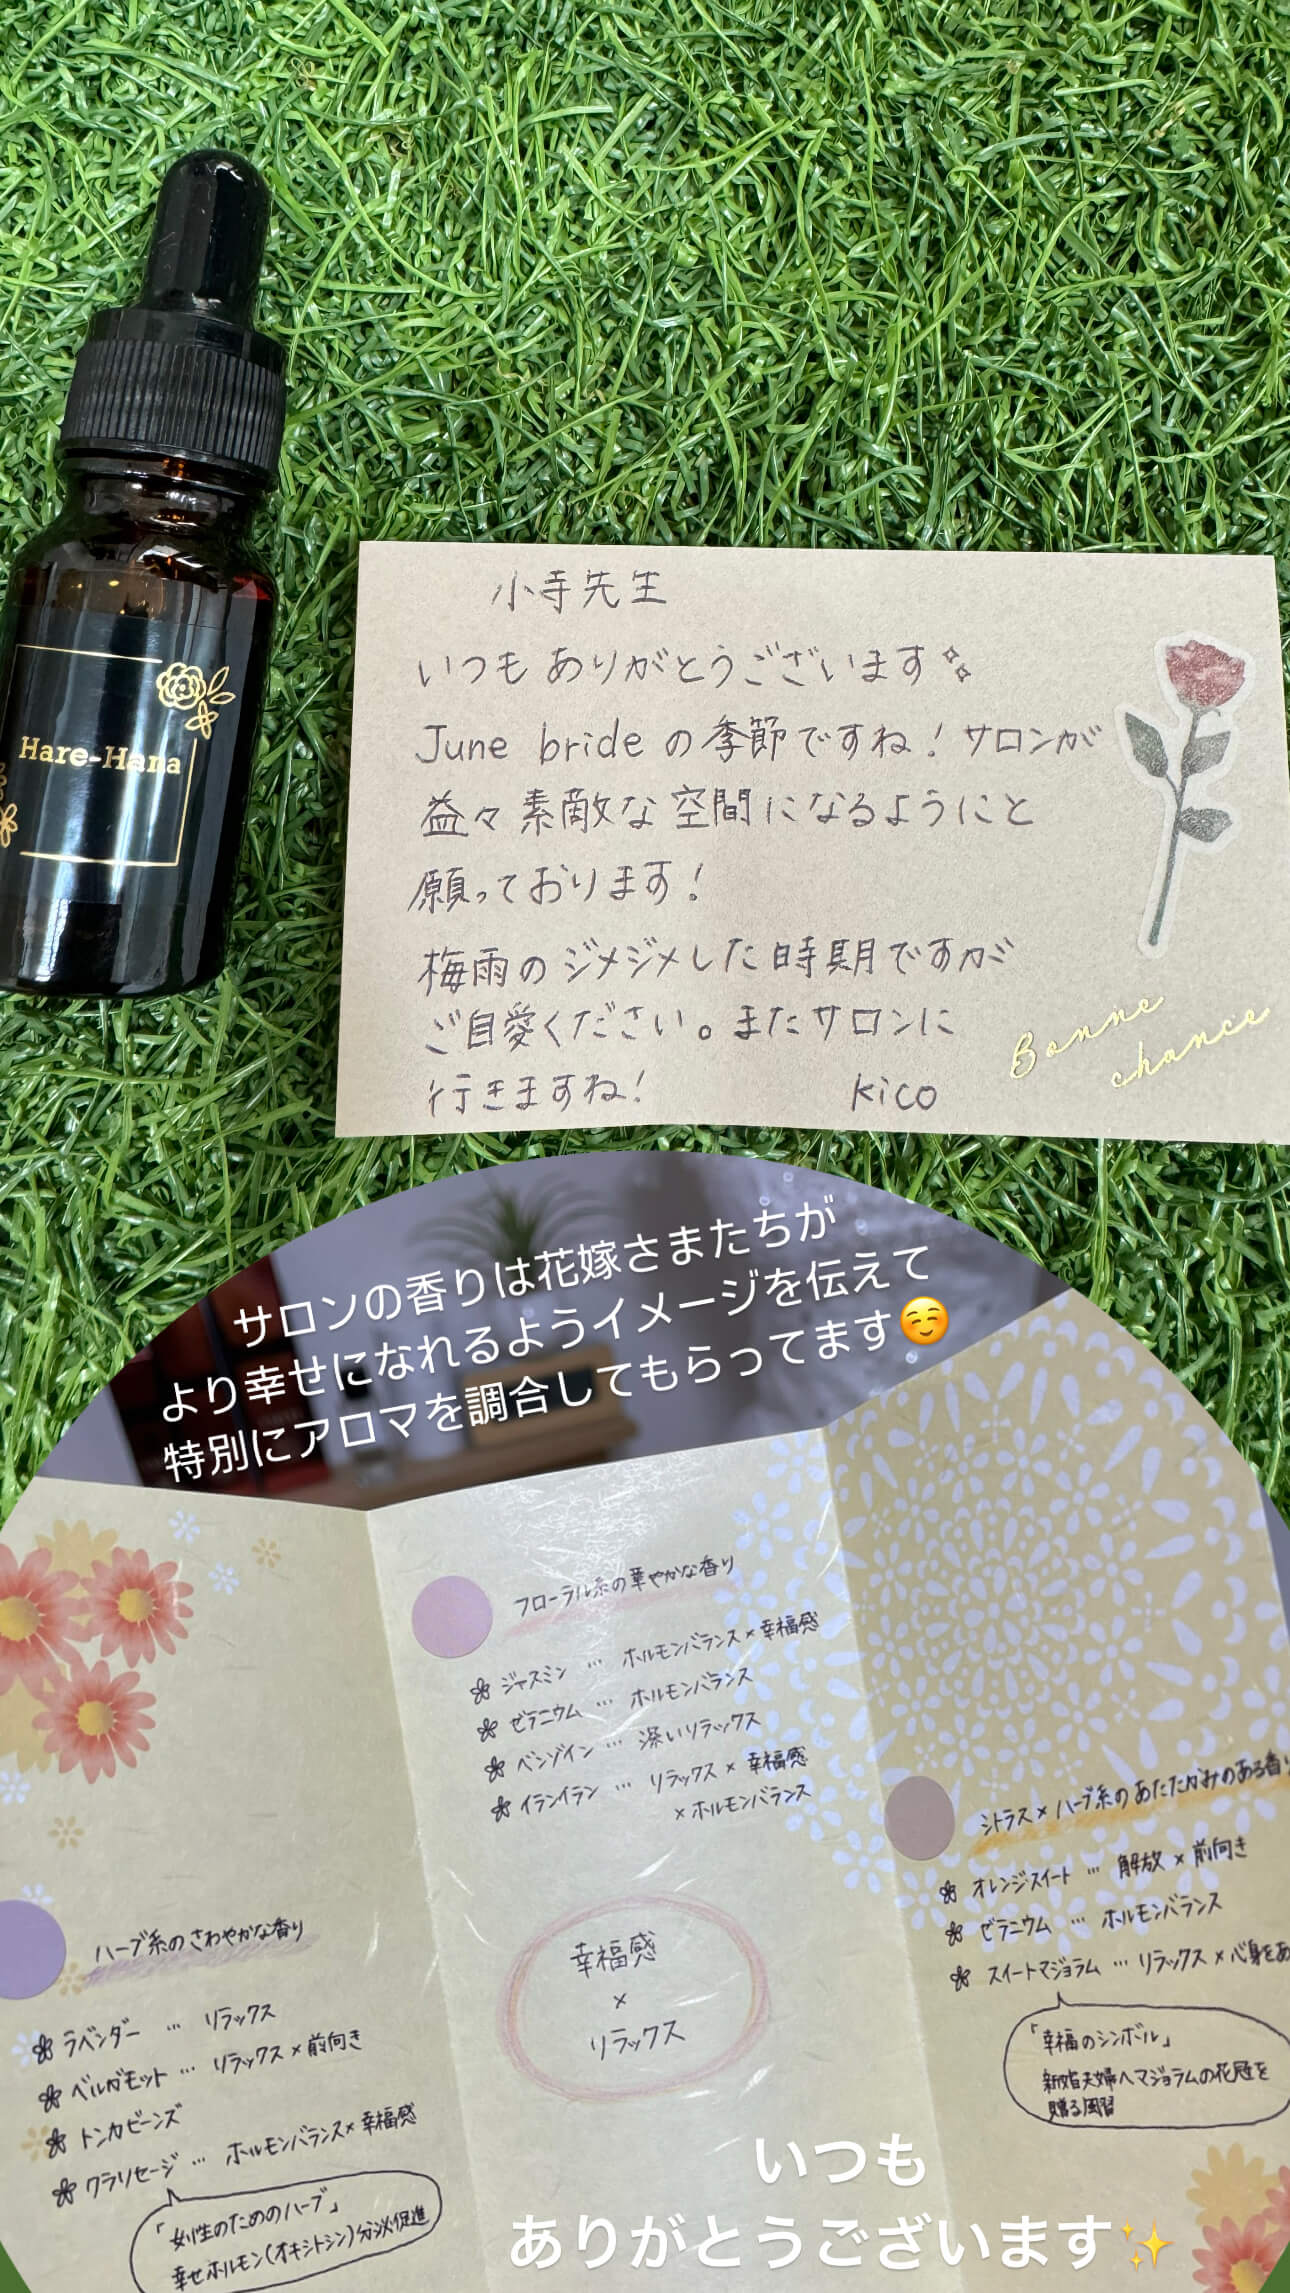 Hare-Hana
小寺先生
いつもありがとうございます
June bride の季節ですね！サロンが
益々素敵な空間になるようにと
願っております！
梅雨のジメジメした時期ですが
ご自愛ください。またサロンに
行きますね！
kico
Bonne
chance
サロンの香りは花嫁さまたちが
より幸せになれるようイメージを伝えて
特別にアロマを調合してもらってます☺️
ハーブ系のさわやかな香り
ラベンダー … リラックス
ベルガモット … リラックス×前向き
トンカビーンズ
クラリセージ … ホルモンバランス×幸福感
「女性のためのハーブ」
幸せホルモン(オキシトシン)分泌促進
フローラル系の華やかな香り
ジャスミン … ホルモンバランス×幸福感
ゼラニウム … ホルモンバランス
ベンゾイン … 深いリラックス
イランイラン … リラックス×幸福感
×ホルモンバランス
幸福感
×
リラックス
シトラス×ハーブ系のあたたかみのある香り
オレンジスイート … 解放×前向き
ゼラニウム … ホルモンバランス
スイートマジョラム … リラックス×心身をあ
「幸福のシンボル」
新婚夫婦へマジョラムの花冠を
贈る風習
いつも
ありがとうございます✨